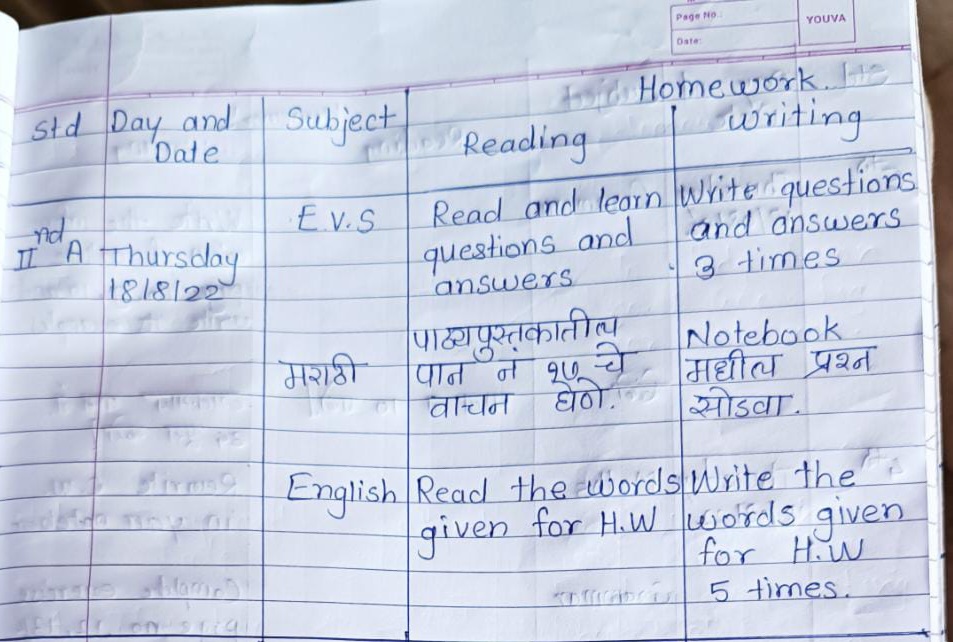 Page No.:
YOUVA
Date:
Homework.
Std Day and Subject Reading writing
Date
E.V.S Read and learn Write questions
IInd A Thursday questions and and answers
18/8/22 answers 3 times
पाठ्यपुस्तकातील Notebook
मराठी पान नं १७ चे मधील प्रश्न
वाचन घेणे. सोडवा.
English Read the words Write the
given for H.W words given
for H.W
5 times.